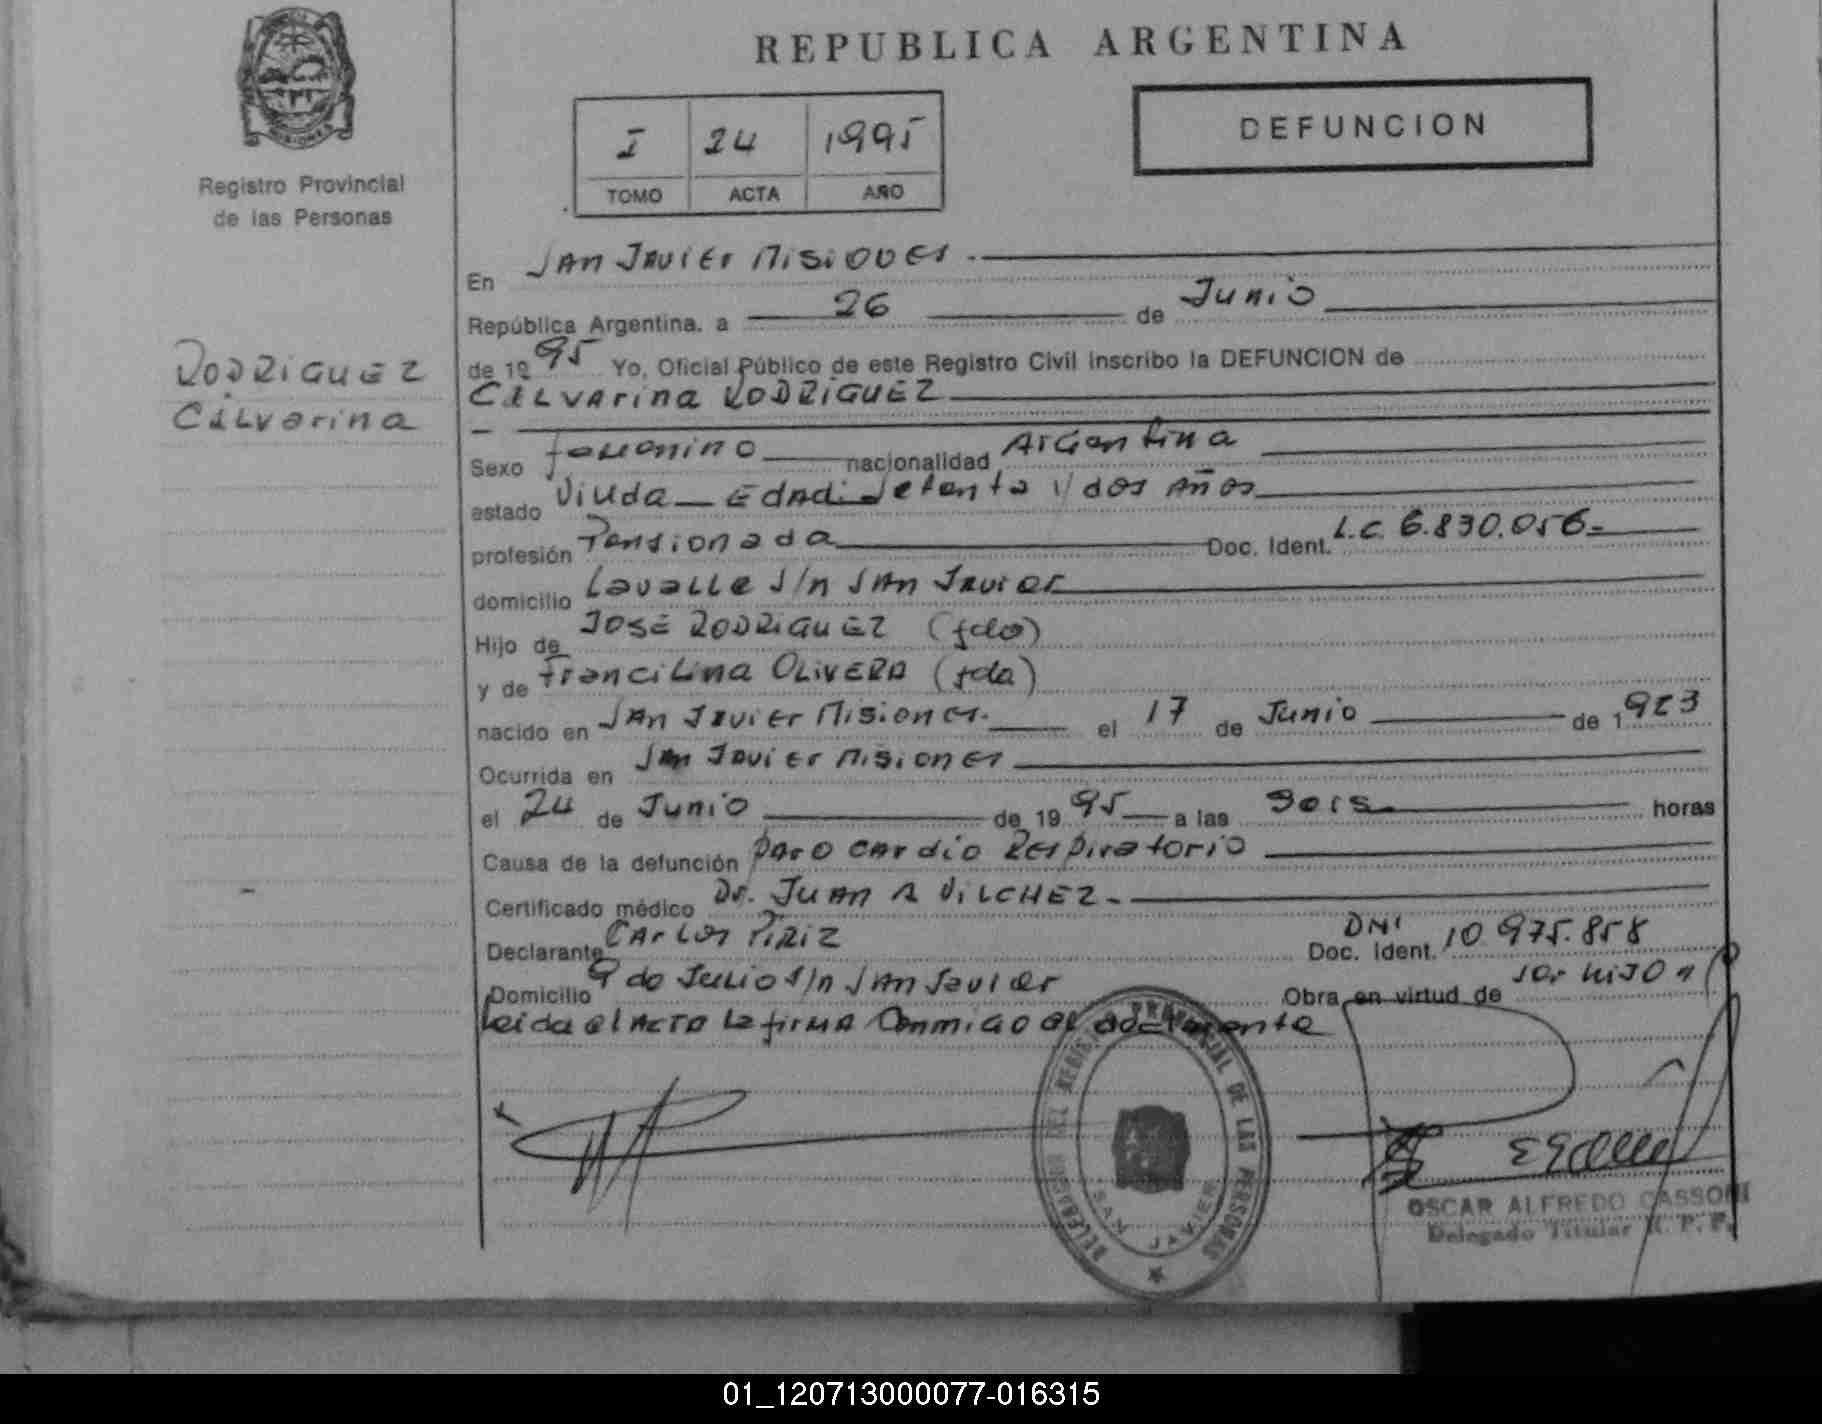 REPUBLICA ARGENTINA
DEFUNCION
I 24 1995
TOMO ACTA AÑO
MISIONES
Registro Provincial
de las Personas
En San Javier Misiones
República Argentina, a 26 de Junio
de 1995 Yo, Oficial Público de este Registro Civil inscribo la DEFUNCION de
RODRIGUEZ
Cilvarina
Cilvarina RODRIGUEZ
Sexo femenino nacionalidad Argentina
estado Viuda - Edad: Setenta y dos años
profesión Pensionada Doc. Ident. L.C. 6.830.056
domicilio Lavalle s/n San Javier
Hijo de José RODRIGUEZ (fdo)
y de Francilina OLIVERA (fda)
nacido en San Javier Misiones. el 17 de Junio de 1923
Ocurrida en San Javier Misiones
el 24 de Junio de 1995 a las horas
Causa de la defunción Paro Cardio Respiratorio
Certificado médico Dr. Juan A VILCHEZ
Declarante Carlos PIRIZ DNI Doc. Ident. 10.975.858
Domicilio 9 de Julio s/n San Javier Obra en virtud de ser hijo
Leida el ACTA la firma Conmigo el
DELEGACION DEL REGISTRO PROVINCIAL DE LAS PERSONAS
SAN JAVIER
OSCAR ALFREDO CASSONI
Delegado Titular R. P. P.
01_120713000077-016315